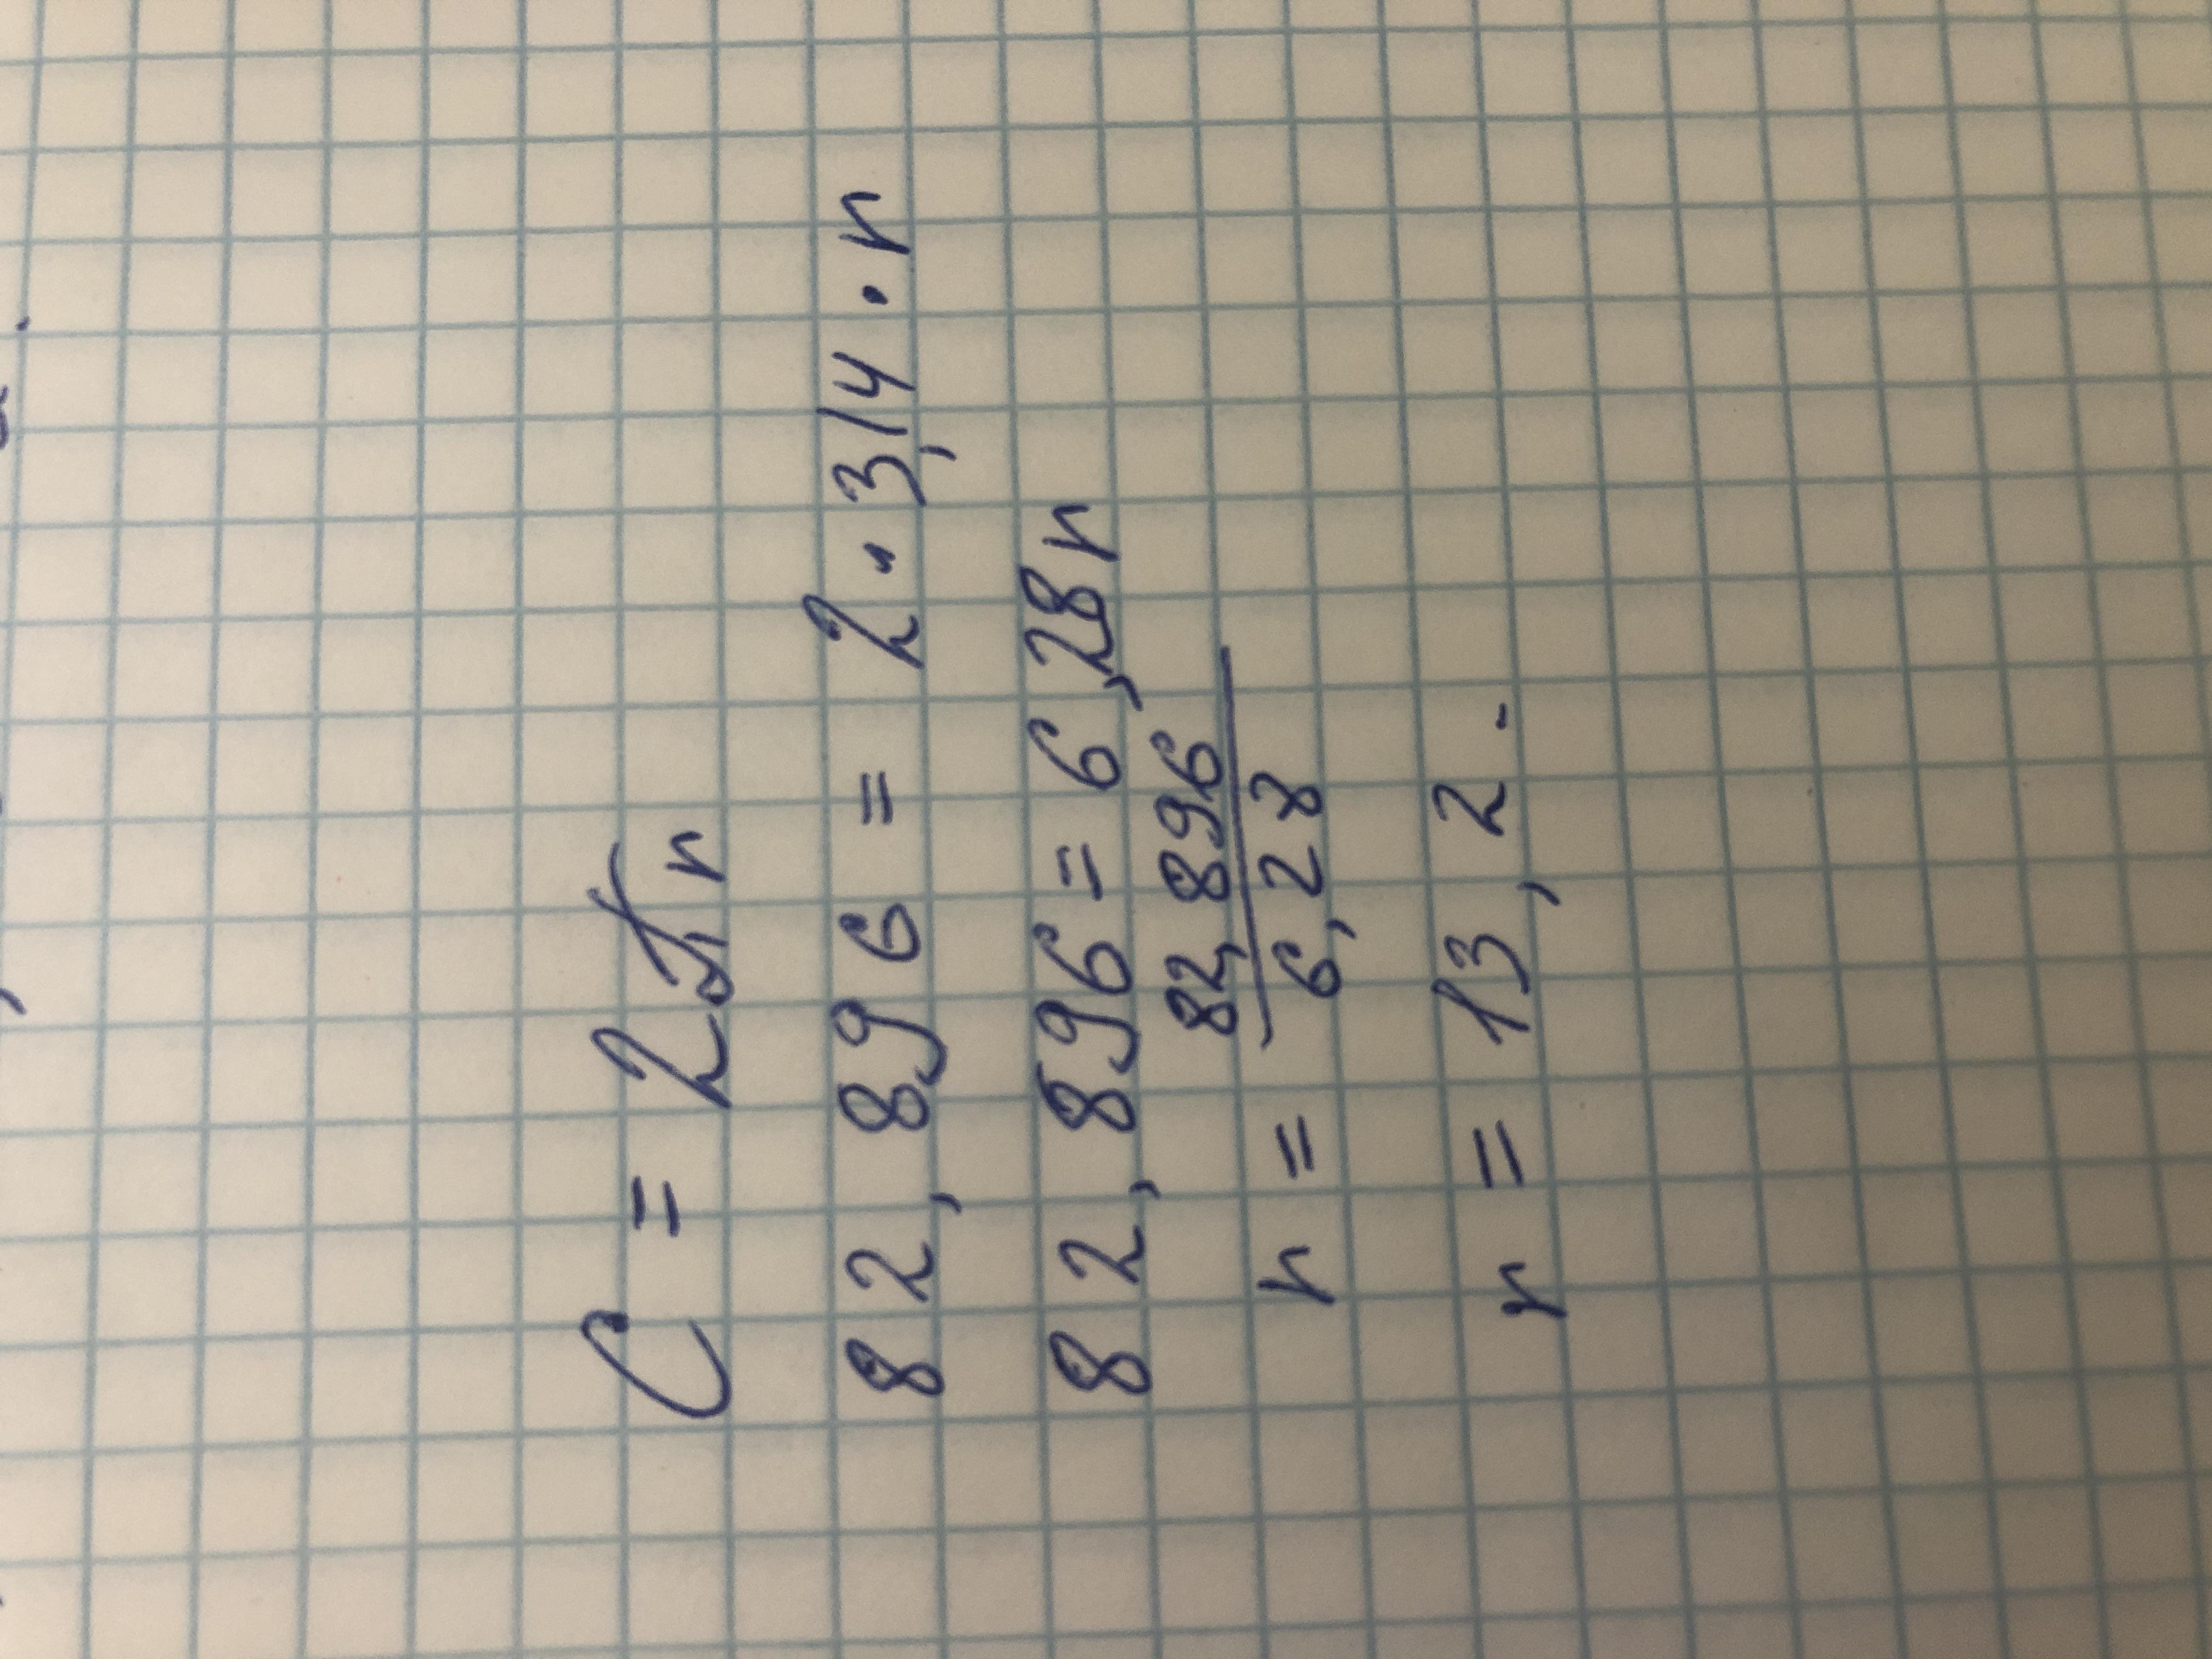 C = 2πr
82,896 = 2·3,14·r
82,896 = 6,28r
r = 82,896/6,28
r = 13,2.